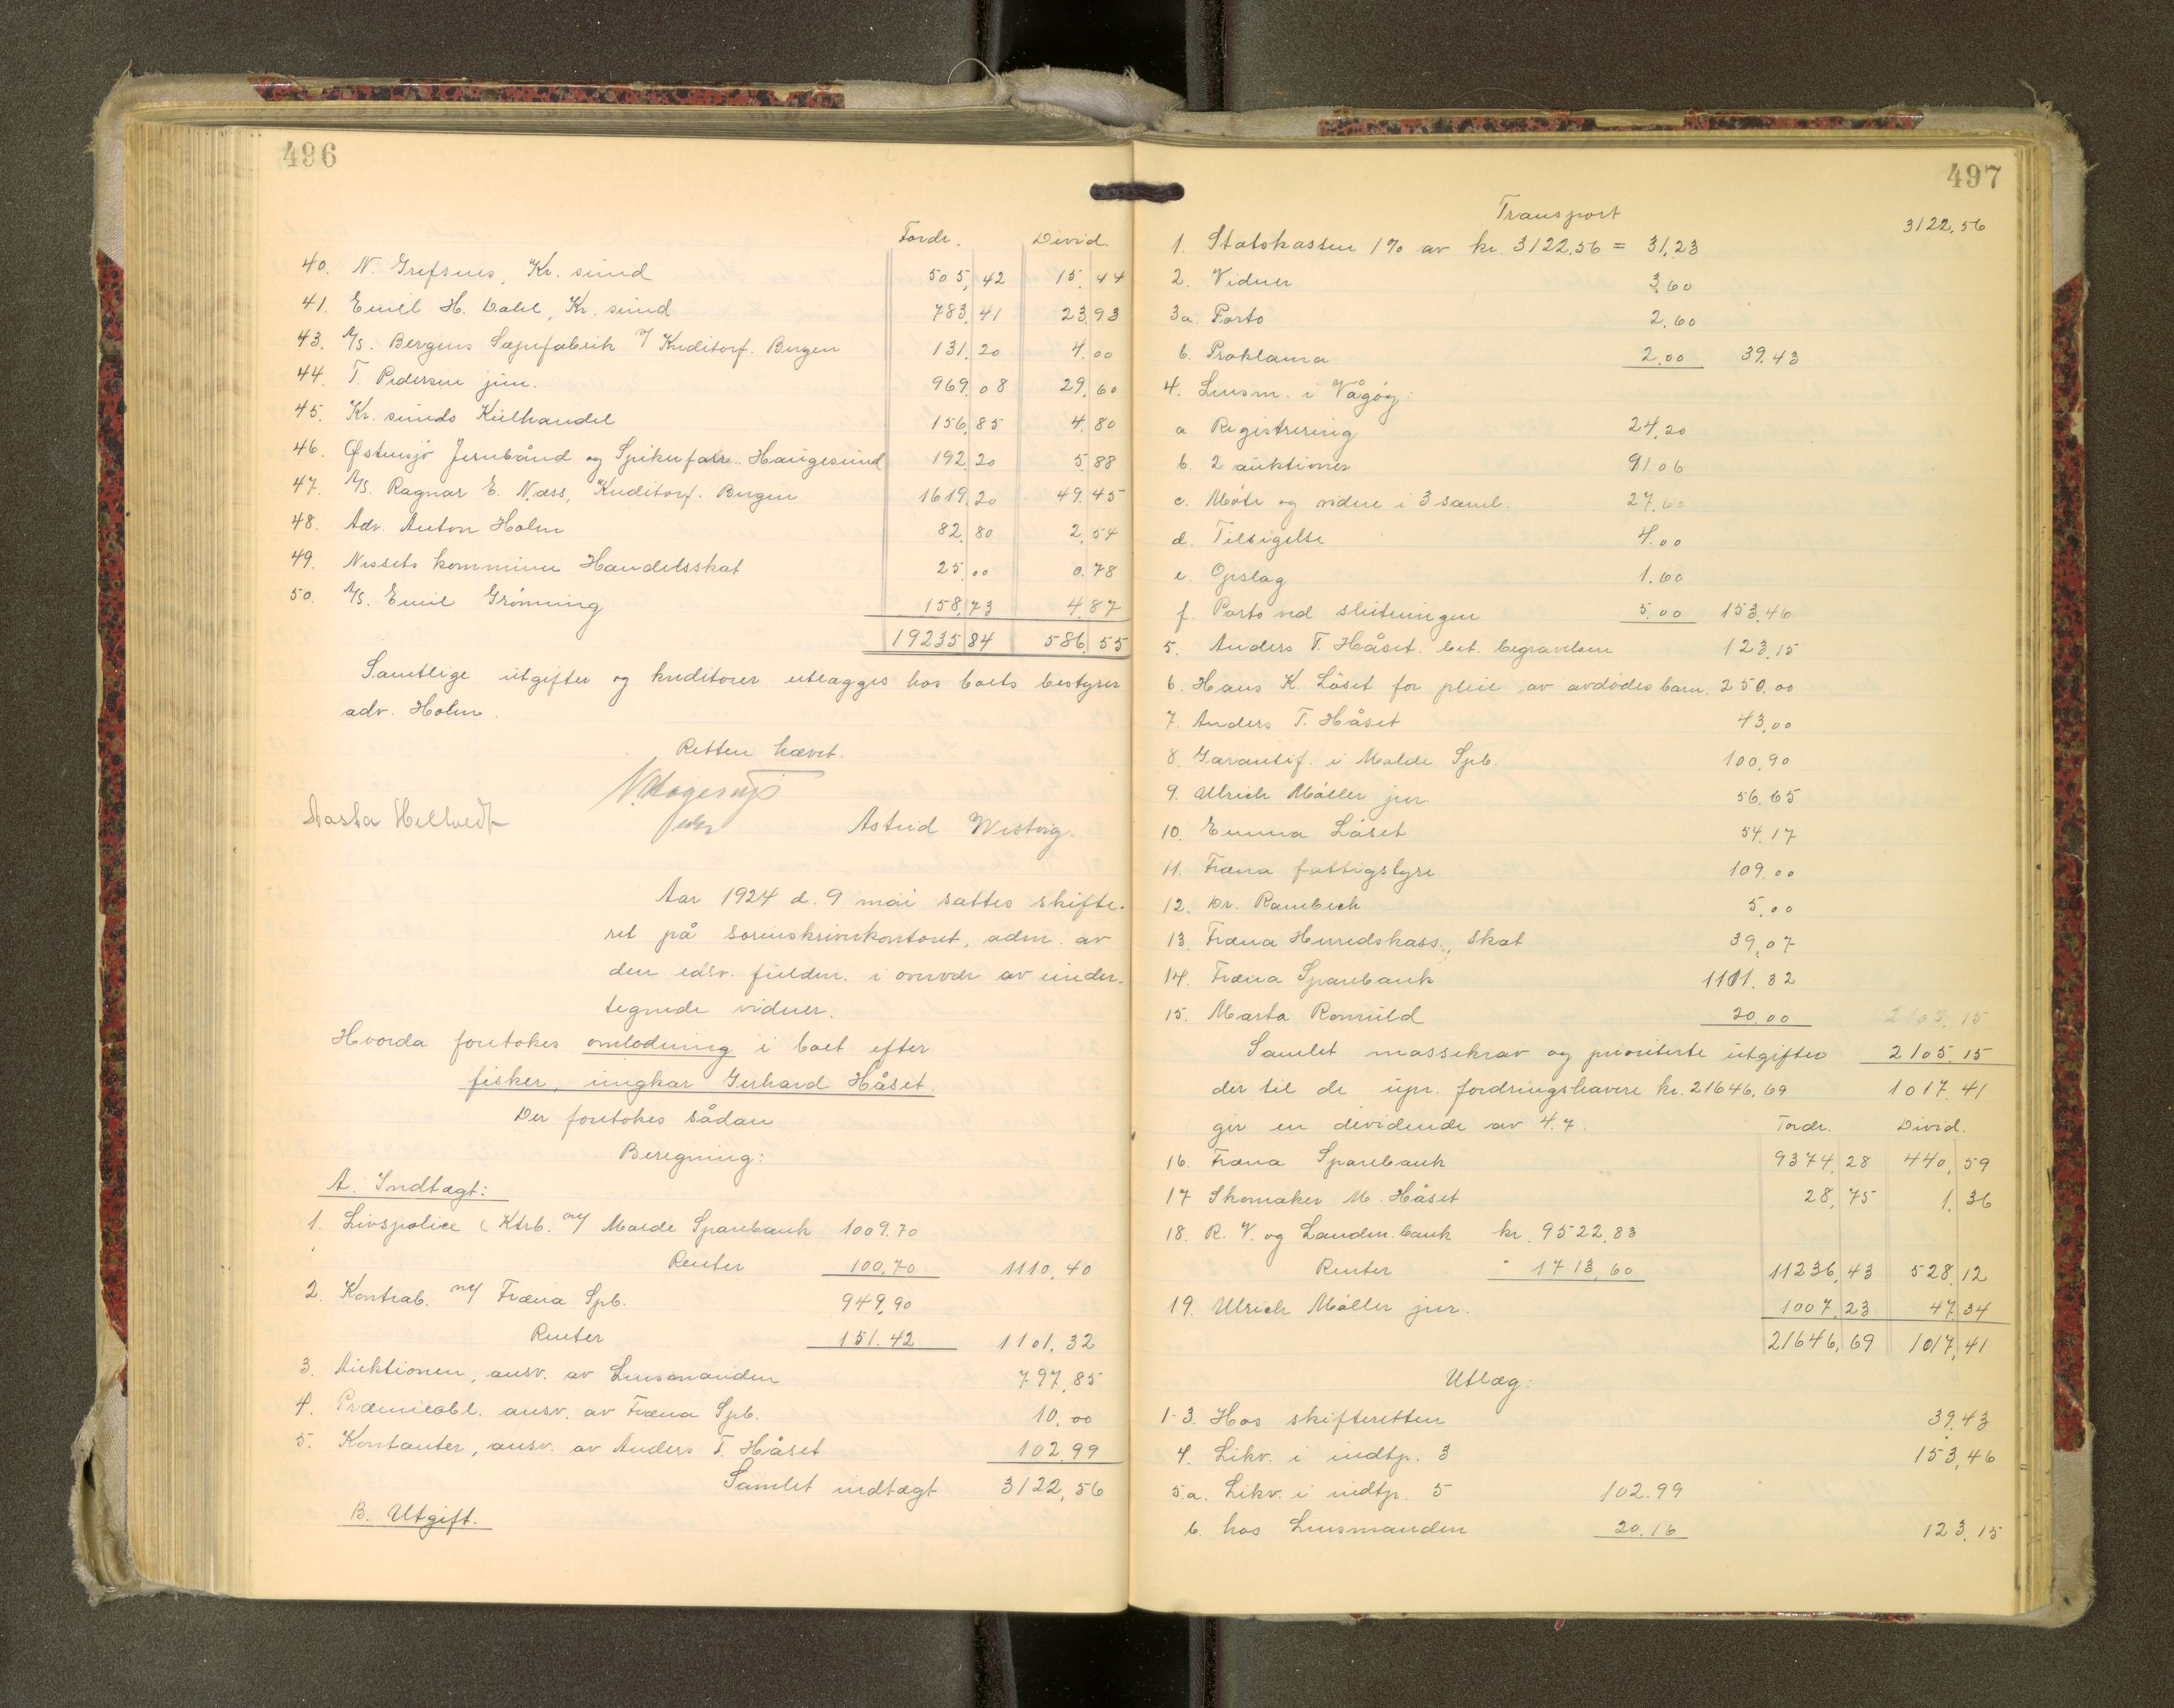 496
Fordr. Divid.
40. N. Grefsnes, Kr. sund 505,42 15,44
41. Emil H. Dahl, Kr. sund 783,41 23,93
43. A/S. Bergens Sæpefabrik v/ Kreditorf. Bergen 131,20 4,00
44. T. Pedersen jun. 969,08 29,60
45. Kr. sunds Kulhandel 156,85 4,80
46. Østensjø Jernbånd og Spikerfabr. Haugesund 192,20 5,88
47. A/S. Ragnar E. Næss, Kreditorf. Bergen 1619,20 49,45
48. Adv. Anton Holm 82,80 2,54
49. Nessets kommune Handelsskat 25,00 0,78
50. A/S. Emil Grønning 158,73 4,87
19235,84 586,55
Samtlige utgifter og kreditorer utlægges hos boets bestyrer
adv. Holm.
Retten hævet.
Aasta Helltvedt Astrid Westvig.
Aar 1924 d. 9 mai sattes skifte-
ret på sorenskriverkontoret, adm. av
den edsv. fuldm. i overvær av under-
tegnede vidner.
Hvorda foretokes omlodning i boet efter
fisker, ungkar Gerhard Håset.
Der foretokes sådan
Beregning:
A. Indtægt:
1. Livspolice (Ktrb. m/ Molde Sparebank 1009.70
Renter 100,70 1110,40
2. Kontrab. m/ Fræna Spb. 949,90
Renter 151.42 1101,32
3. Auktionen, ansv. av Lensmanden 797,85
4. Præmieobl. ansv. av Fræna Spb. 10,00
5. Kontanter, ansv. av Anders T. Håset 102,99
Samlet indtægt 3122,56
B. Utgift.
497
Transport 3122,56
1. Statskassen 1% av kr. 3122,56 = 31,23
2. Vidner 3,60
3a. Porto 2,60
b. Proklama 2,00 39,43
4. Lensm. i Vågøy:
a. Registrering 24,20
b. 2 auktioner 91 06
c. Møte og vidne i 3 saml. 27,60
d. Tilsigelse 4,00
e. Opslag 1.60
f. Porto ved slutningen 5,00 153,46
5. Anders T. Håset. bet. begravelsen 123,15
6. Hans K. Løset for pleie av avdødes barn. 250,00
7. Anders T. Håset 43,00
8. Garantif. i Molde Spb. 100,90
9. Ulrich Møller jur 56,65
10. Emma Løset 54,17
11. Fræna fattigstyre 109,00
12. Dr. Rambech 5,00
13. Fræna Herredskass., skat 39,07
14. Fræna Sparebank 1101.32
15. Marta Romuld 20,00 2105,15
Samlet massekrav og prioriterte utgifter 2105,15
der til de upr. fordringshavere kr. 21646,69 1017,41
gir en dividende av 4.7.
Fordr. Divid.
16. Fræna Sparebank 9374,28 440,59
17 Skomaker M. Håset 28,75 1,36
18. R. V. og Landm. bank kr. 9522,83
Renter " 1713,60 11236,43 528,12
19. Ulrich Møller jur. 1007,23 47,34
21646,69 1017,41
Utlæg:
1-3. Hos skifteretten 39,43
4. Likv. i indtp. 3 153,46
5.a. Likv. i indtp. 5 102.99
b. hos Lensmanden 20.16 123,15